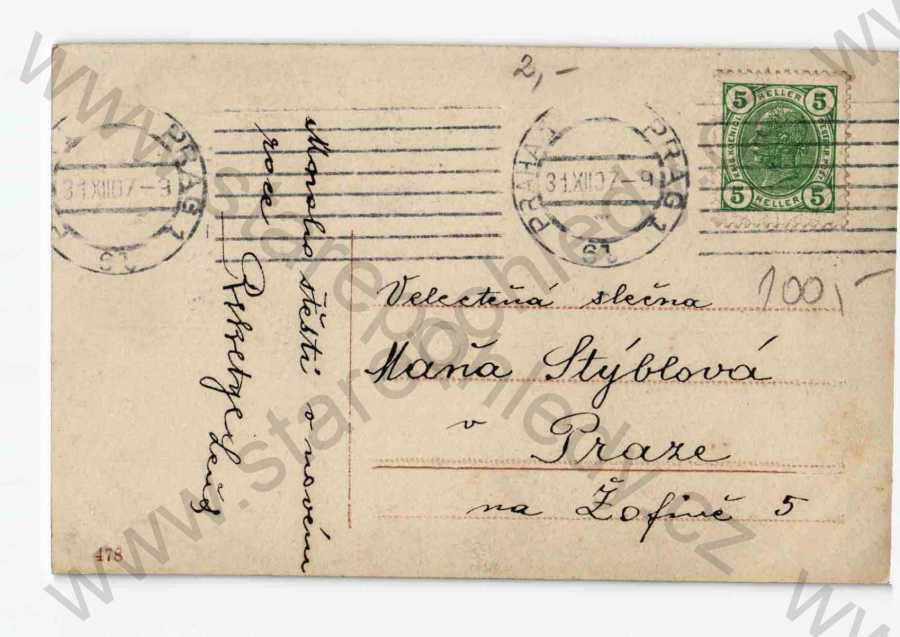 2,-
PRAHA 1 PRAG 1
31.XII.07-9
PRAG 1
31.XII.07-9
5 HELLER 5
5 HELLER 5
Mnoho štěstí v novém
roce
Velectěná slečna
100,-
Maňa Stýblová
v
Praze
na Žofíně 5
478
www.starepohledy.cz